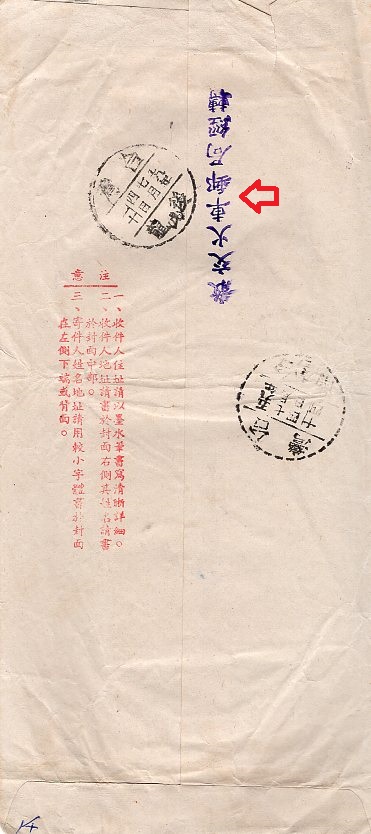 發交火車郵局經轉
注意
一、收件人住址請以墨水筆書寫清晰詳細。
二、收件人地址請書於封面右側其姓名請書
於封面中部。
三、寄件人姓名地址請用較小字體書於封面
在左側下端或背面。
台灣